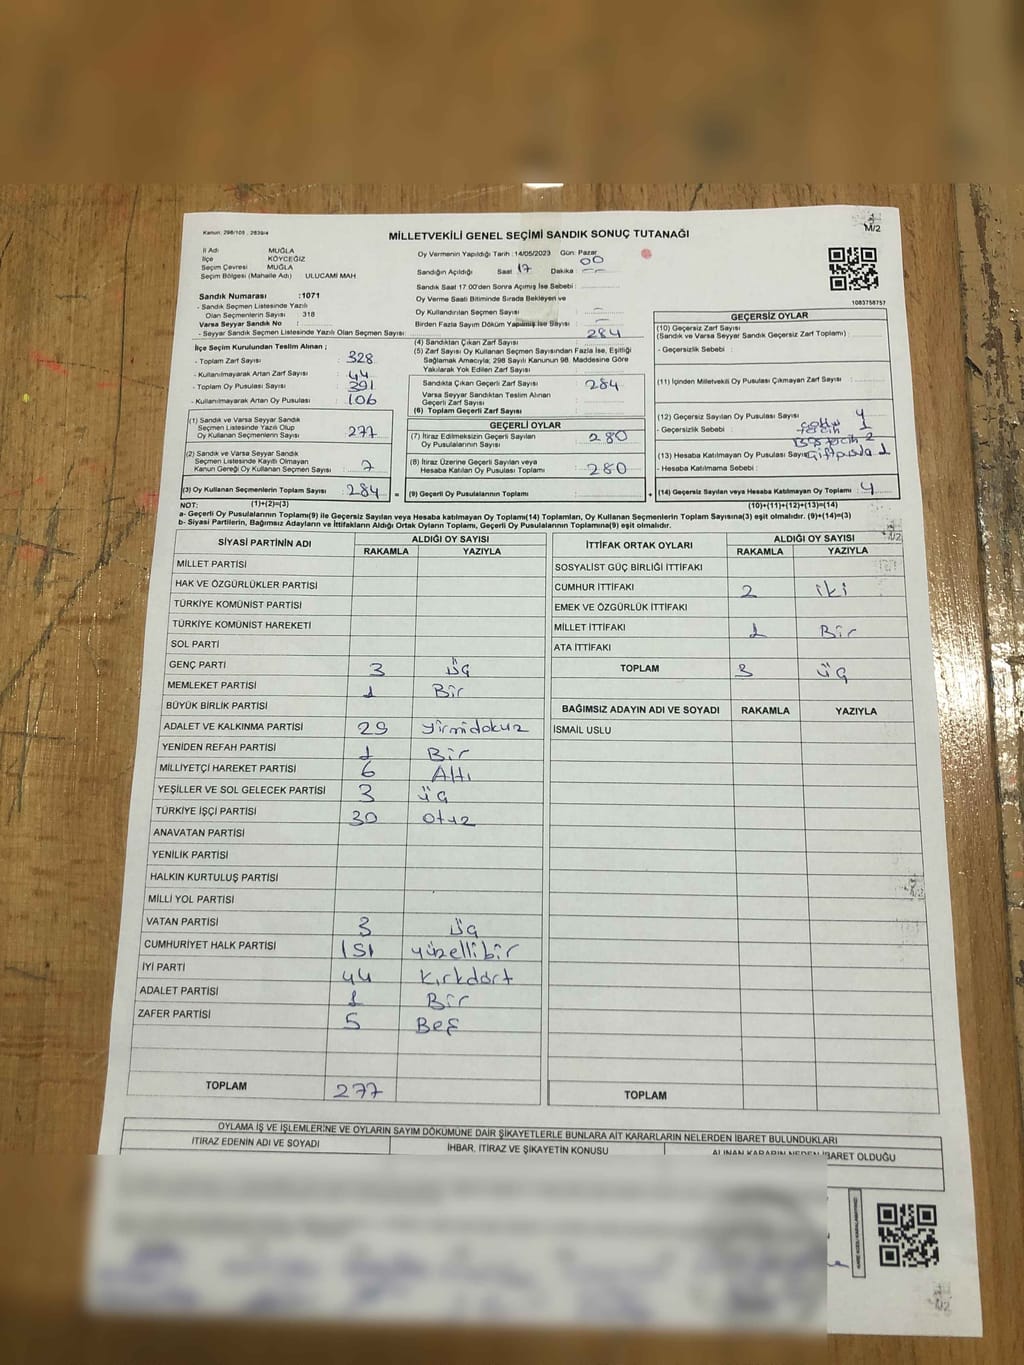 Kanun: 298/105 , 2839/4
MİLLETVEKİLİ GENEL SEÇİMİ SANDIK SONUÇ TUTANAĞI
M/2
İl Adı MUĞLA
İlçe KÖYCEĞİZ
Seçim Çevresi MUĞLA
Seçim Bölgesi (Mahalle Adı) ULUCAMİ MAH
Oy Vermenin Yapıldığı Tarih : 14/05/2023 Gün: Pazar
Sandığın Açıldığı Saat 17 Dakika : 00
Sandık Saat 17:00'den Sonra Açılmış İse Sebebi :
Oy Verme Saati Bitiminde Sırada Bekleyen ve
Oy Kullandırılan Seçmen Sayısı : —
Birden Fazla Sayım Döküm Yapılmış İse Sayısı : —
1083758757
Sandık Numarası :1071
- Sandık Seçmen Listesinde Yazılı
Olan Seçmenlerin Sayısı 318
Varsa Seyyar Sandık No :
- Seyyar Sandık Seçmen Listesinde Yazılı Olan Seçmen Sayısı :
İlçe Seçim Kurulundan Teslim Alınan ;
- Toplam Zarf Sayısı : 328
- Kullanılmayarak Artan Zarf Sayısı : 44
- Toplam Oy Pusulası Sayısı : 391
- Kullanılmayarak Artan Oy Pusulası : 106
(1) Sandık ve Varsa Seyyar Sandık
Seçmen Listesinde Yazılı Olup
Oy Kullanan Seçmenlerin Sayısı : 277
(2) Sandık ve Varsa Seyyar Sandık
Seçmen Listesinde Kayıtlı Olmayan
Kanun Gereği Oy Kullanan Seçmen Sayısı : 7
(3) Oy Kullanan Seçmenlerin Toplam Sayısı : 284 =
(4) Sandıktan Çıkan Zarf Sayısı : 284
(5) Zarf Sayısı Oy Kullanan Seçmen Sayısından Fazla İse, Eşitliği
Sağlamak Amacıyla; 298 Sayılı Kanunun 98. Maddesine Göre
Yakılarak Yok Edilen Zarf Sayısı :
Sandıkta Çıkan Geçerli Zarf Sayısı : 284
Varsa Seyyar Sandıktan Teslim Alınan
Geçerli Zarf Sayısı :
(6) Toplam Geçerli Zarf Sayısı :
GEÇERLİ OYLAR
(7) İtiraz Edilmeksizin Geçerli Sayılan
Oy Pusulalarının Sayısı : 280
(8) İtiraz Üzerine Geçerli Sayılan veya
Hesaba Katılan Oy Pusulası Toplamı : 280
(9) Geçerli Oy Pusulalarının Toplamı : +
GEÇERSİZ OYLAR
(10) Geçersiz Zarf Sayısı
(Sandık ve Varsa Seyyar Sandık Geçersiz Zarf Toplamı) :
- Geçersizlik Sebebi :
(11) İçinden Milletvekili Oy Pusulası Çıkmayan Zarf Sayısı :
(12) Geçersiz Sayılan Oy Pusulası Sayısı : 4
- Geçersizlik Sebebi : tercih 1
Boş tercih 2
(13) Hesaba Katılmayan Oy Pusulası Sayısı
- Hesaba Katılmama Sebebi :
(14) Geçersiz Sayılan veya Hesaba Katılmayan Oy Toplamı : 4
NOT: (1)+(2)=(3) (10)+(11)+(12)+(13)=(14)
a- Geçerli Oy Pusulalarının Toplamı(9) ile Geçersiz Sayılan veya Hesaba katılmayan Oy Toplam(14) Toplamları, Oy Kullanan Seçmenlerin Toplam Sayısına(3) eşit olmalıdır. (9)+(14)=(3)
b- Siyasi Partilerin, Bağımsız Adayların ve İttifakların Aldığı Ortak Oyların Toplamı, Geçerli Oy Pusulalarının Toplamına(9) eşit olmalıdır.
SİYASİ PARTİNİN ADI ALDIĞI OY SAYISI
RAKAMLA YAZIYLA
MİLLET PARTİSİ
HAK VE ÖZGÜRLÜKLER PARTİSİ
TÜRKİYE KOMÜNİST PARTİSİ
TÜRKİYE KOMÜNİST HAREKETİ
SOL PARTİ
GENÇ PARTİ 3 üç
MEMLEKET PARTİSİ 1 Bir
BÜYÜK BİRLİK PARTİSİ
ADALET VE KALKINMA PARTİSİ 29 yirmidokuz
YENİDEN REFAH PARTİSİ 1 Bir
MİLLİYETÇİ HAREKET PARTİSİ 6 Altı
YEŞİLLER VE SOL GELECEK PARTİSİ 3 üç
TÜRKİYE İŞÇİ PARTİSİ 30 otuz
ANAVATAN PARTİSİ
YENİLİK PARTİSİ
HALKIN KURTULUŞ PARTİSİ
MİLLİ YOL PARTİSİ
VATAN PARTİSİ 3 üç
CUMHURİYET HALK PARTİSİ 151 yüzellibir
İYİ PARTİ 44 kırkdört
ADALET PARTİSİ 1 Bir
ZAFER PARTİSİ 5 Beş
TOPLAM 277
İTTİFAK ORTAK OYLARI ALDIĞI OY SAYISI
RAKAMLA YAZIYLA
SOSYALİST GÜÇ BİRLİĞİ İTTİFAKI
CUMHUR İTTİFAKI 2 iki
EMEK VE ÖZGÜRLÜK İTTİFAKI
MİLLET İTTİFAKI 1 Bir
ATA İTTİFAKI
TOPLAM 3 üç
BAĞIMSIZ ADAYIN ADI VE SOYADI RAKAMLA YAZIYLA
İSMAİL USLU
TOPLAM
OYLAMA İŞ VE İŞLEMLERİNE VE OYLARIN SAYIM DÖKÜMÜNE DAİR ŞİKAYETLERLE BUNLARA AİT KARARLARIN NELERDEN İBARET BULUNDUKLARI
İTİRAZ EDENİN ADI VE SOYADI İHBAR, İTİRAZ VE ŞİKAYETİN KONUSU ALINAN KARARIN NEDEN İBARET OLDUĞU